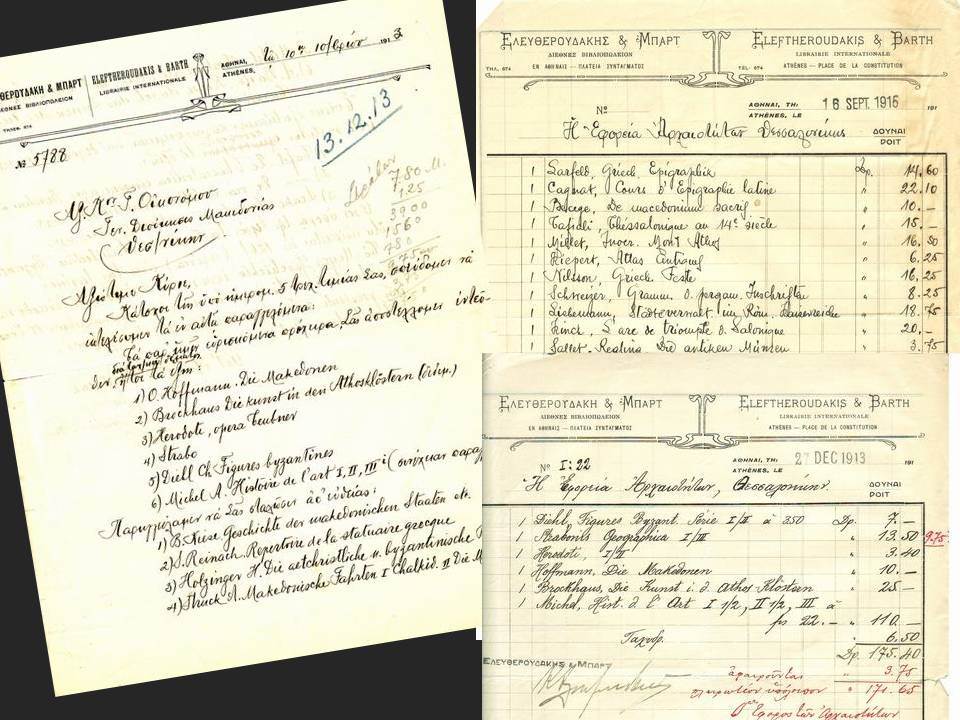 ΘΕΡΟΥΔΑΚΗ & ΜΠΑΡΤ
ΔΙΕΘΝΕΣ ΒΙΒΛΙΟΠΩΛΕΙΟΝ
ΤΗΛΕΦ. 674
ELEFTHEROUDAKIS & BARTH
LIBRAIRIE INTERNATIONALE
ΑΘΗΝΑΙ,
ATHÈNES,
τῇ 10ῃ 10/βρίου 1913
13.12.13
№ 5788
780
1,25
3900
156
780
Ἀξ. Κον Γ. Οἰκονόμου
Γεν. Διοίκησις Μακεδονίας
Θεσ/νίκην
Ἀξιότιμε Κύριε,
1) O. Hoffmann. Die Makedonen
2) Brockhaus Die Kunst in den Athosklöstern
3) Herodote, opera Teubner
4) Strabo
5) Diehl Ch. Figures byzantines
6) Michel A. Histoire de l'art I, II, III
1) B. Niese. Geschichte der makedonischen Staaten etc.
2) S. Reinach. Repertoire de la statuaire grecque
3) Holzinger H. Die altchristliche u. byzantinische
4) Struck A. Makedonische Fahrten I Chalkid. II Die
ΕΛΕΥΘΕΡΟΥΔΑΚΗΣ & ΜΠΑΡΤ
ΔΙΕΘΝΕΣ ΒΙΒΛΙΟΠΩΛΕΙΟΝ
ΤΗΛ. 674 ΕΝ ΑΘΗΝΑΙΣ — ΠΛΑΤΕΙΑ ΣΥΝΤΑΓΜΑΤΟΣ
ELEFTHEROUDAKIS & BARTH
LIBRAIRIE INTERNATIONALE
TÉL. 674 ATHÈNES - PLACE DE LA CONSTITUTION
№
ΑΘΗΝΑΙ, ΤΗ:
ATHÈNES, LE
16 SEPT. 1916 191
Ἡ Ἐφορεία Ἀρχαιοτήτων Θεσσαλονίκης
ΔΟΥΝΑΙ
DOIT
1 Larfeld, Griech. Epigraphik Δρ. 14.60
1 Cagnat, Cours d'Epigraphie latine 22.10
1 Baege, De macedonium sacris 10.—
1 Tafrali, Thessalonique au 14e siècle 15.—
1 Millet, Inscr. Mont Athos 16.50
1 Kiepert, Atlas Antiquus 6.25
1 Nilsson, Griech. Feste 16.25
1 Schweizer, Gramm. d. pergam. Inschriften 8.25
1 Liebenam, Städteverwalt. im Röm. Kaiserreiche 18.75
1 Kinch, L'arc de triomphe d. Salonique 20.—
1 Sallet, Regling, Die antiken Münzen 3.75
ΕΛΕΥΘΕΡΟΥΔΑΚΗ & ΜΠΑΡΤ
ΔΙΕΘΝΕΣ ΒΙΒΛΙΟΠΩΛΕΙΟΝ
ΕΝ ΑΘΗΝΑΙΣ — ΠΛΑΤΕΙΑ ΣΥΝΤΑΓΜΑΤΟΣ
ELEFTHEROUDAKIS & BARTH
LIBRAIRIE INTERNATIONALE
ATHÈNES — PLACE DE LA CONSTITUTION
№ I:22
ΑΘΗΝΑΙ, ΤΗ:
ATHÈNES, LE
27 DEC 1913 191
Ἡ Ἐφορεία Ἀρχαιοτήτων, Θεσσαλονίκην.
ΔΟΥΝΑΙ
DOIT
1 Diehl, Figures Byzant. Série I/II à 350 Δρ. 7.—
1 Strabonis Geographica I/III 13.50 9.75
1 Herodoti, I/II 3.40
1 Hoffmann, Die Makedonen 10.—
1 Brockhaus, Die Kunst i. d. Athos Klöstern 25—
1 Michel, Hist. d. l'Art I 1/2, II 1/2, III à
frs 22.— 110.—
Ταχυδρ. 6.50
Δρ. 175.40
ΕΛΕΥΘΕΡΟΥΔΑΚΗΣ & ΜΠΑΡΤ
ἀφαιροῦνται 3.75
πληρωτέον ὑπόλοιπον 171.65
Ὁ Ἔφορος τῶν Ἀρχαιοτήτων